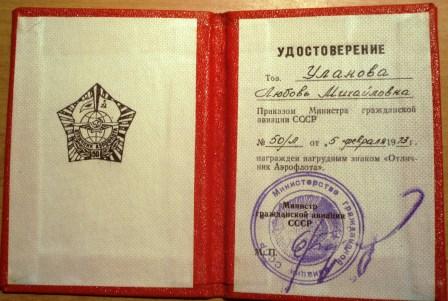 УДОСТОВЕРЕНИЕ
Тов. Уланова
Любовь Михайловна
Приказом Министра гражданской
авиации СССР
№ 50/Л от „5 февраля 1973г.
награжден нагрудным знаком «Отлич-
ник Аэрофлота».
Министр
гражданской авиации
СССР
М.П.
Министерство гражданской авиации СССР